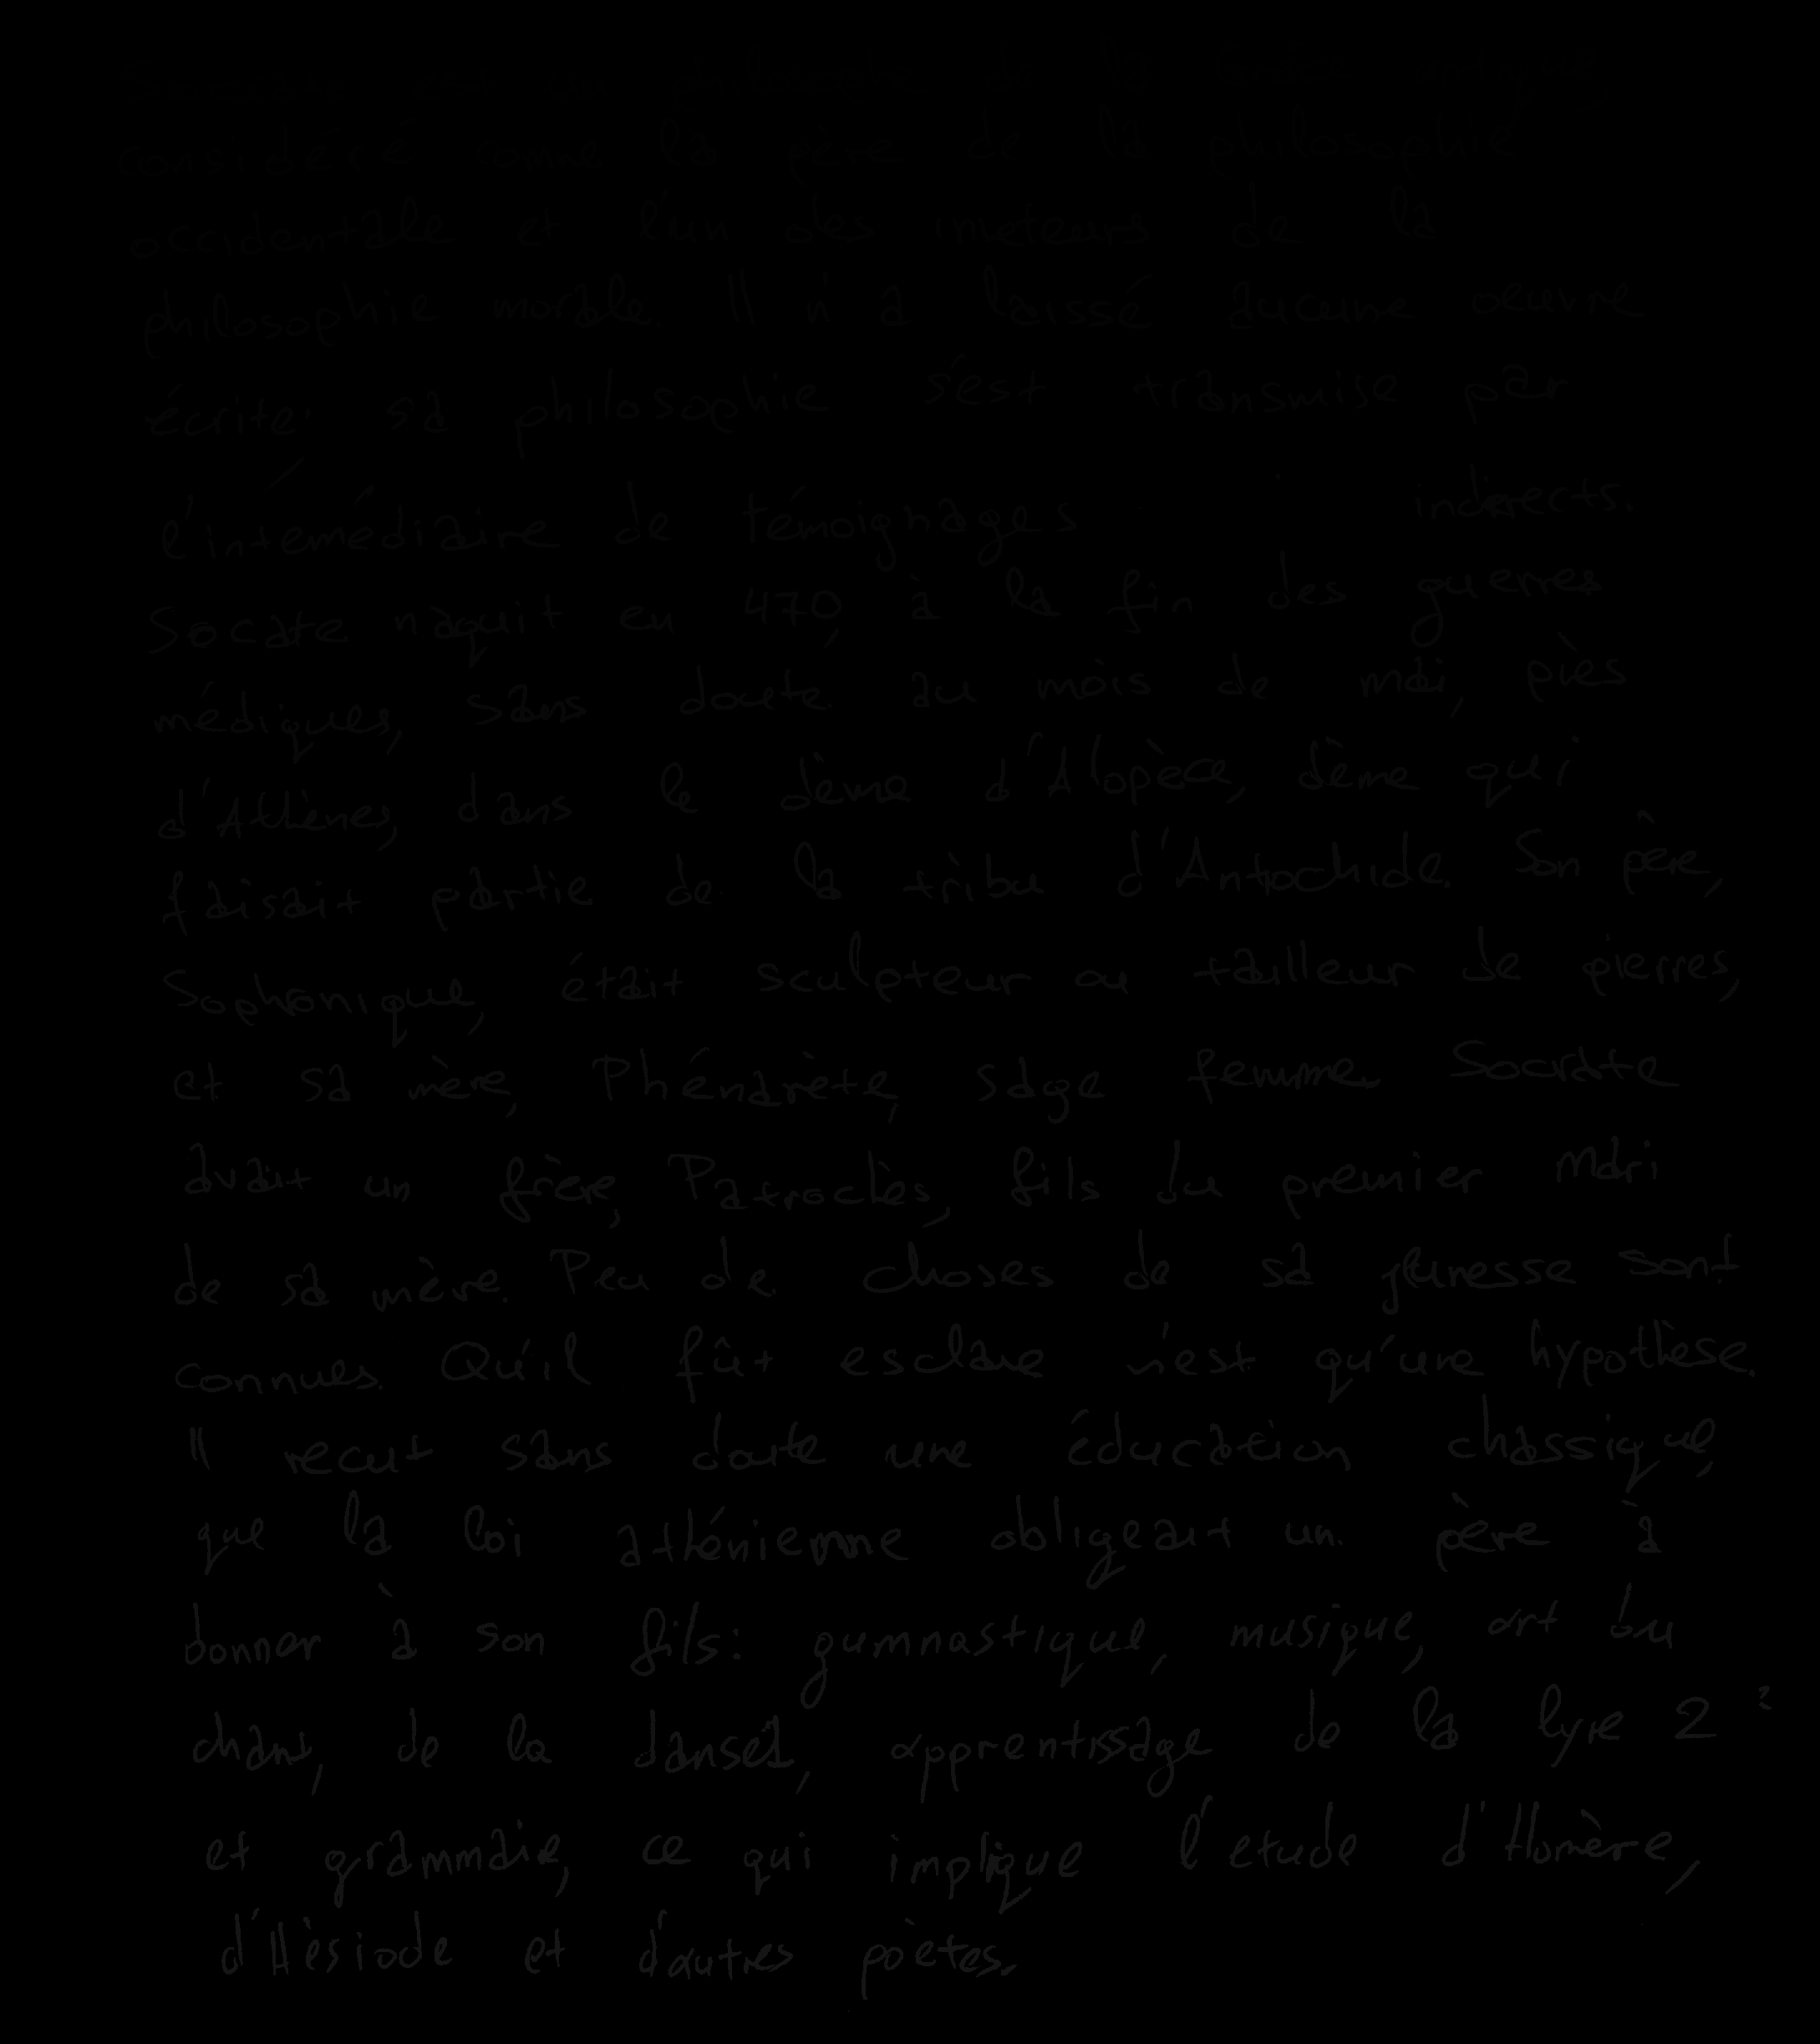 considéré comme la père de la philosophie
occidentale et l'un des inveteurs de la
philosophie morale. Il n'a laissé aucune oeuvre
écrite: sa philosophie s'est transmise par
l'intemédiaire de témoignages indirects.
Socate naquit en 470, à la fin des guerres
médiques, sans doute au mois de mai, près
d'Athènes, dans le dème d'Alopèce, dème qui
faisait partie de la tribu d'Antiochide. Son père,
Sophronique, était sculpteur ou tailleur de pierres,
et sa mère, Phénarète, sage femme Socrate
avait un frère, Patroclès, fils du premier mari
de sa mère. Peu de choses de sa jeunesse sont
connues. Qu'il fût esclave n'est qu'une hypothèse.
Il recut sans doute une éducation chassique,
que la loi athénienne obligeait un père à
donner à son fils: gumnastique, musique, art du
chant, de la danse, apprentissage de la lyre 2
et grammaie, ce qui implique l'etude d'Homère,
d'Hésiode et d'autres poètes.